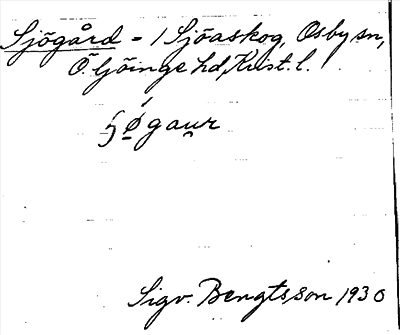 Sjögård = 1 Sjöaskog, Osby sn,
Ö. Göinge hd, Krist. l.
Sigv. Bengtsson 1930